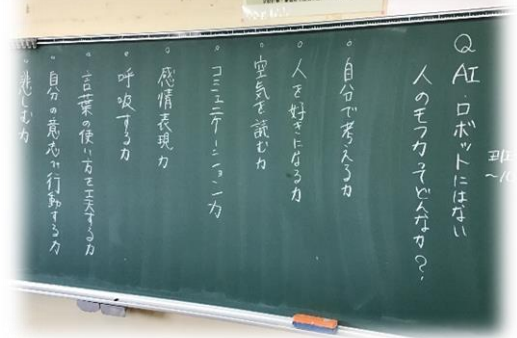 Q AI・ロボットにはない
人のもつ力ってどんな力?
。自分で考える力
。人を好きになる力
。空気を読む力
。コミュニケーション力
。感情表現力
。呼吸する力
。言葉の使い方を工夫する力
。自分の意志で行動する力
しむ力
班